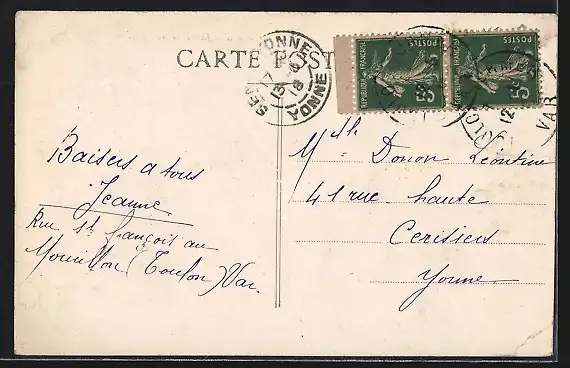 CARTE POST
SENS YONNE
17
13 - 8
18
YONNE
REPUBLIQUE FRANÇAISE
POSTES
5c
REPUBLIQUE FRANÇAISE
POSTES
5c
12
VAR
Baisers a tous
Jeanne
Rue St François au
Mourillon (Toulon) Var.
Mlle Doucn Léontine
41 rue haute
Cerisiers
Yonne